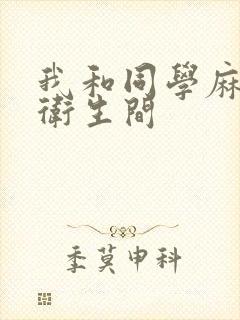 我和同學麻
衛生間
季莫申科